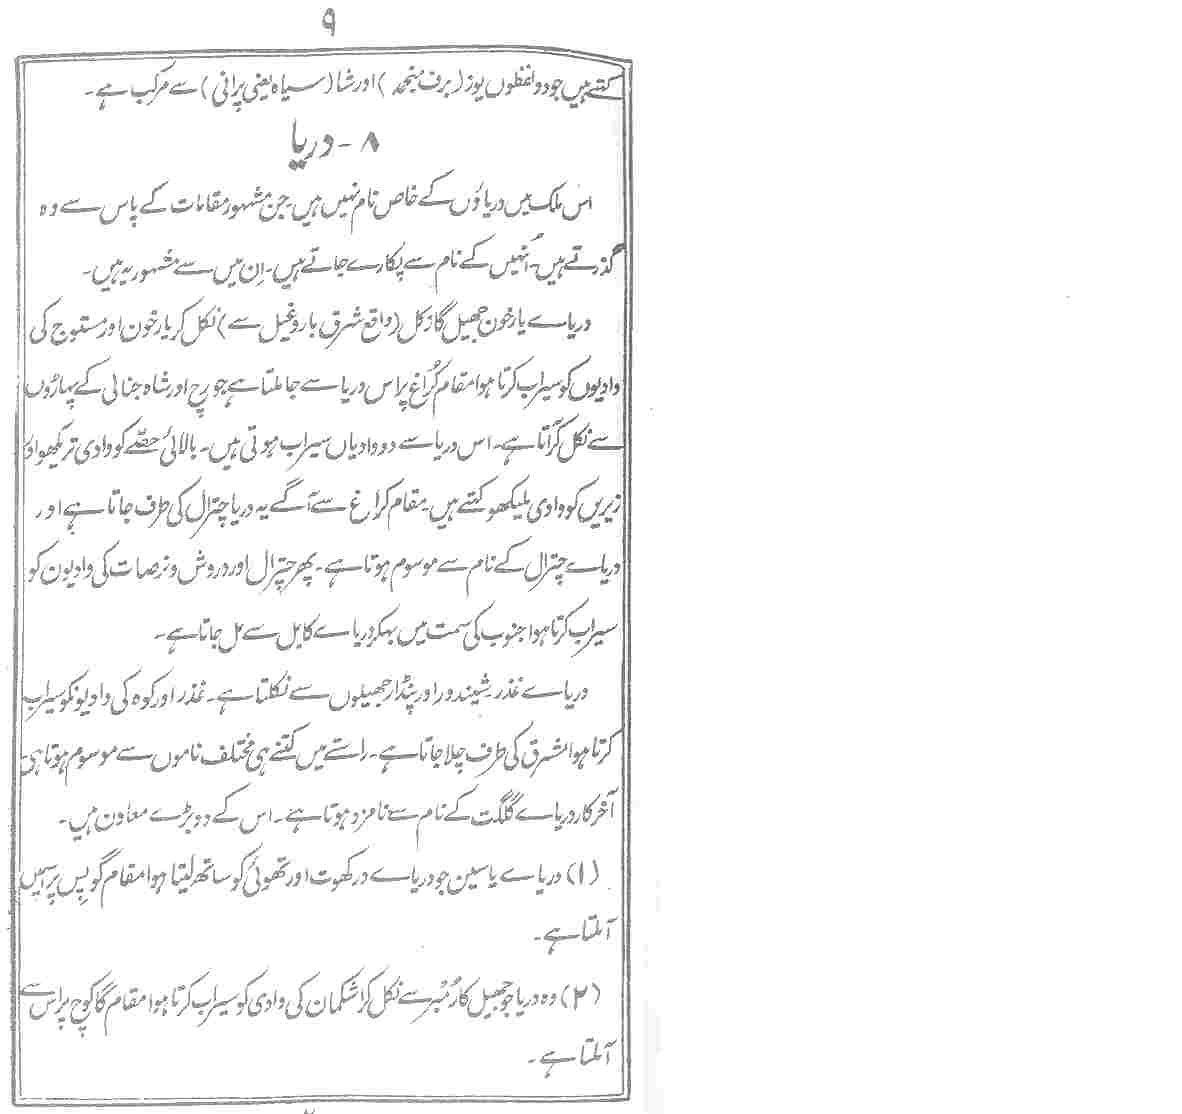 ۹
کہتے ہیں جو دو لفظوں یوز (برف منجمد) اور شا (سیاہ یعنی پرانی) سے مرکب ہے۔
۸ - دریا
اس ملک میں دریاؤں کے خاص نام نہیں ہیں۔ جن مشہور مقامات کے پاس سے وہ
گذرتے ہیں۔ اُنہیں کے نام سے پکارے جاتے ہیں۔ اِن میں سے مشہور یہ ہیں۔
دریاے یارخون جھیل گازکل (واقع شرق باروغیل سے) نکل کر یارخون اور مستوج کی
وادیوں کو سیراب کرتا ہوا مقام کُراغ پر اس دریا سے جا ملتا ہے جو رِچ اور شاہ جنالی کے پہاڑوں
سے نکل کر آتا ہے۔ اس دریا سے دو وادیاں سیراب ہوتی ہیں۔ بالائی حصّے کو وادی تریکھو اور
زیریں کو وادی ملیکھو کہتے ہیں۔ مقام کراغ سے آگے یہ دریا چترال کی طرف جاتا ہے اور
دریاے چترال کے نام سے موسوم ہوتا ہے۔ پھر چترال اور دروش و نرصات کی وادیون کو
سیراب کرتا ہوا جنوب کی سمت میں بہکر دریاے کابل سے مل جاتا ہے۔
دریاے غذر شیندور اور پنڈار جھیلوں سے نکلتا ہے۔ غذر اور کوہ کی وادیونکو سیراب
کرتا ہوا مشرق کی طرف چلا جاتا ہے۔ راستے میں کتنے ہی مختلف ناموں سے موسوم ہوتا ہی
آخرکار دریاے گلگت کے نام سے نامزد ہوتا ہے۔ اس کے دو بڑے معاون ہیں۔
(۱) دریاے یاسین جو دریاے درکھوت اور تھوئی کو ساتھ لیتا ہوا مقام گوپس پر اسمیں
آملتا ہے۔
(۲) وہ دریا جو جھیل کارُمبر سے نکل کر اشکمان کی وادی کو سیراب کرتا ہوا مقام گاکوچ پر اس سے
آملتا ہے۔